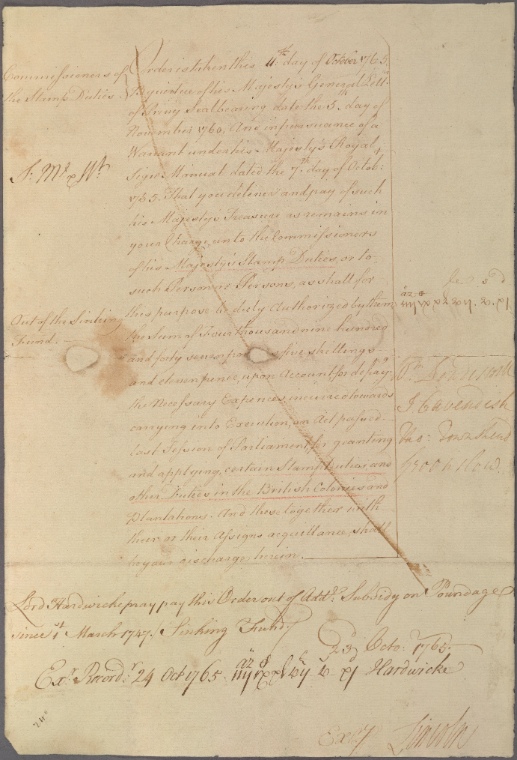 Commissioners of
the Stamp Duties.
Order is taken this 4th day of October 1765
By virtue of his Majesty's General
of Privy Seal bearing date the 5th day of
November 1760, And in pursuance of a
Warrant under his Majesty's Royal
Sign Manual dated the 7th day of
1765. That you deliver and pay of such
his Majesty's Treasure as remains in
your Charge, unto the Commissioners
of his Majesty's Stamp Duties, or to
such Person or Persons, as shall for
this purpose be duly Authorized by them
the Sum of Four thousand nine hundred
and forty seven five shillings
and eleven pence, upon Account for defray
the Necessary Expences incurred towards
carrying into Execution, an Act passed
last Session of Parliament, for granting
and applying, certain Stamp Duties and
other Duties in the British Colonies and
Plantations. And these together with
their or their Assigns acquittance, shall
be your discharge herein.
Out of the Sinking
Fund.
J Cavendish
Tho: Townshend
Lord Hardwicke pray pay this Order out of Subsidy on Poundage
since 1st March 1747. Sinking Fund
23 Octo: 1765.
Exr Record 24 Oct 1765
Hardwicke
Lincoln